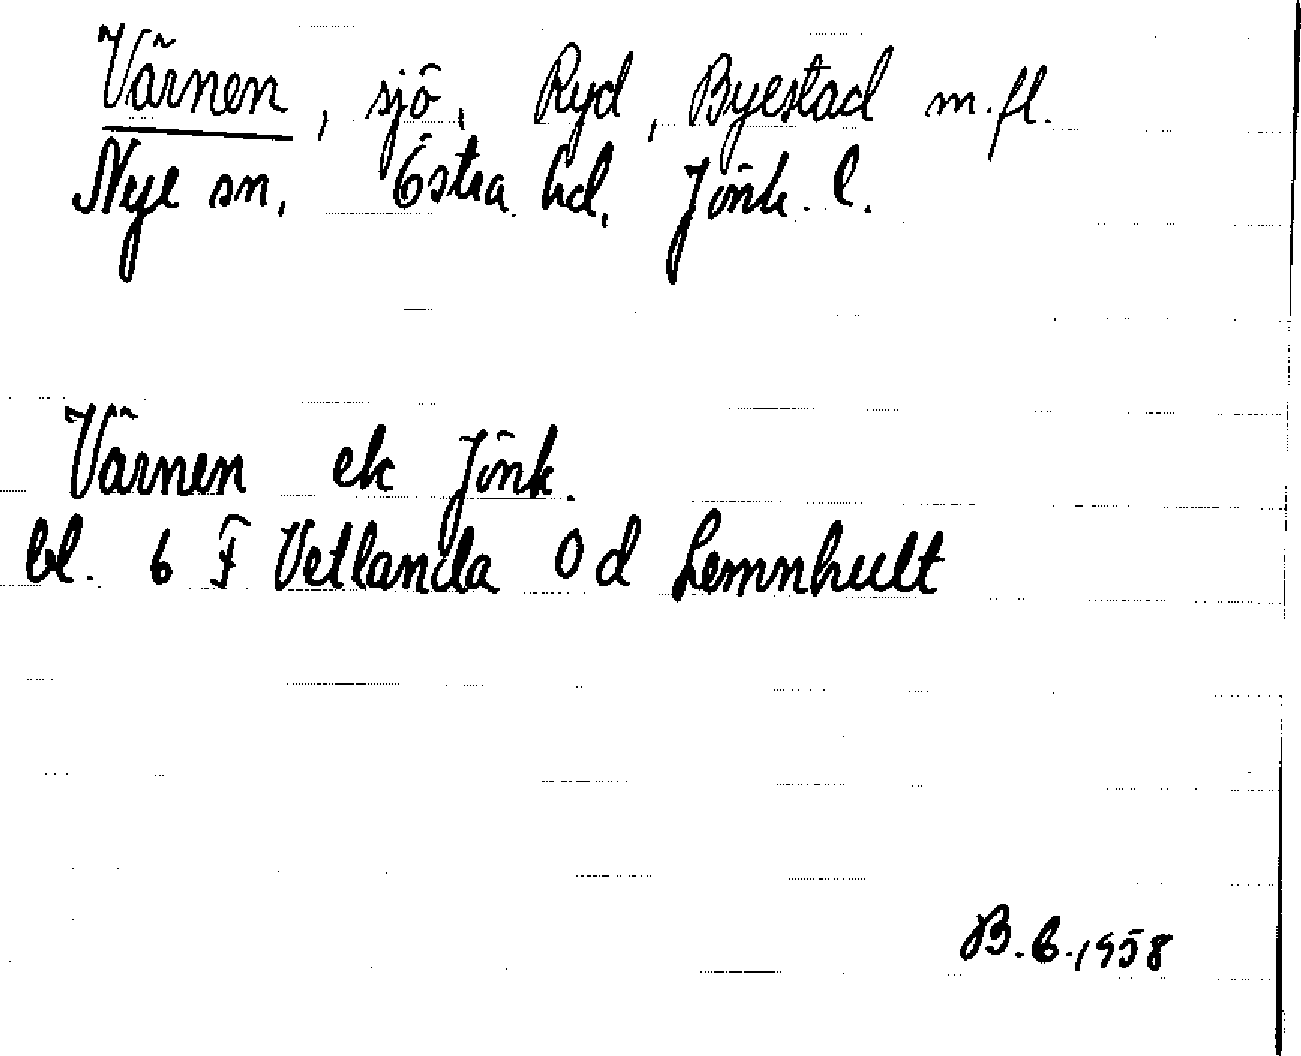 Värnen, sjö, Ryd, Byestad m.fl.
Nye sn. Östra hd. Jönk. l.
Värnen ek Jönk.
bl. 6 F Vetlanda 0 d Lemnhult
B.6.1958